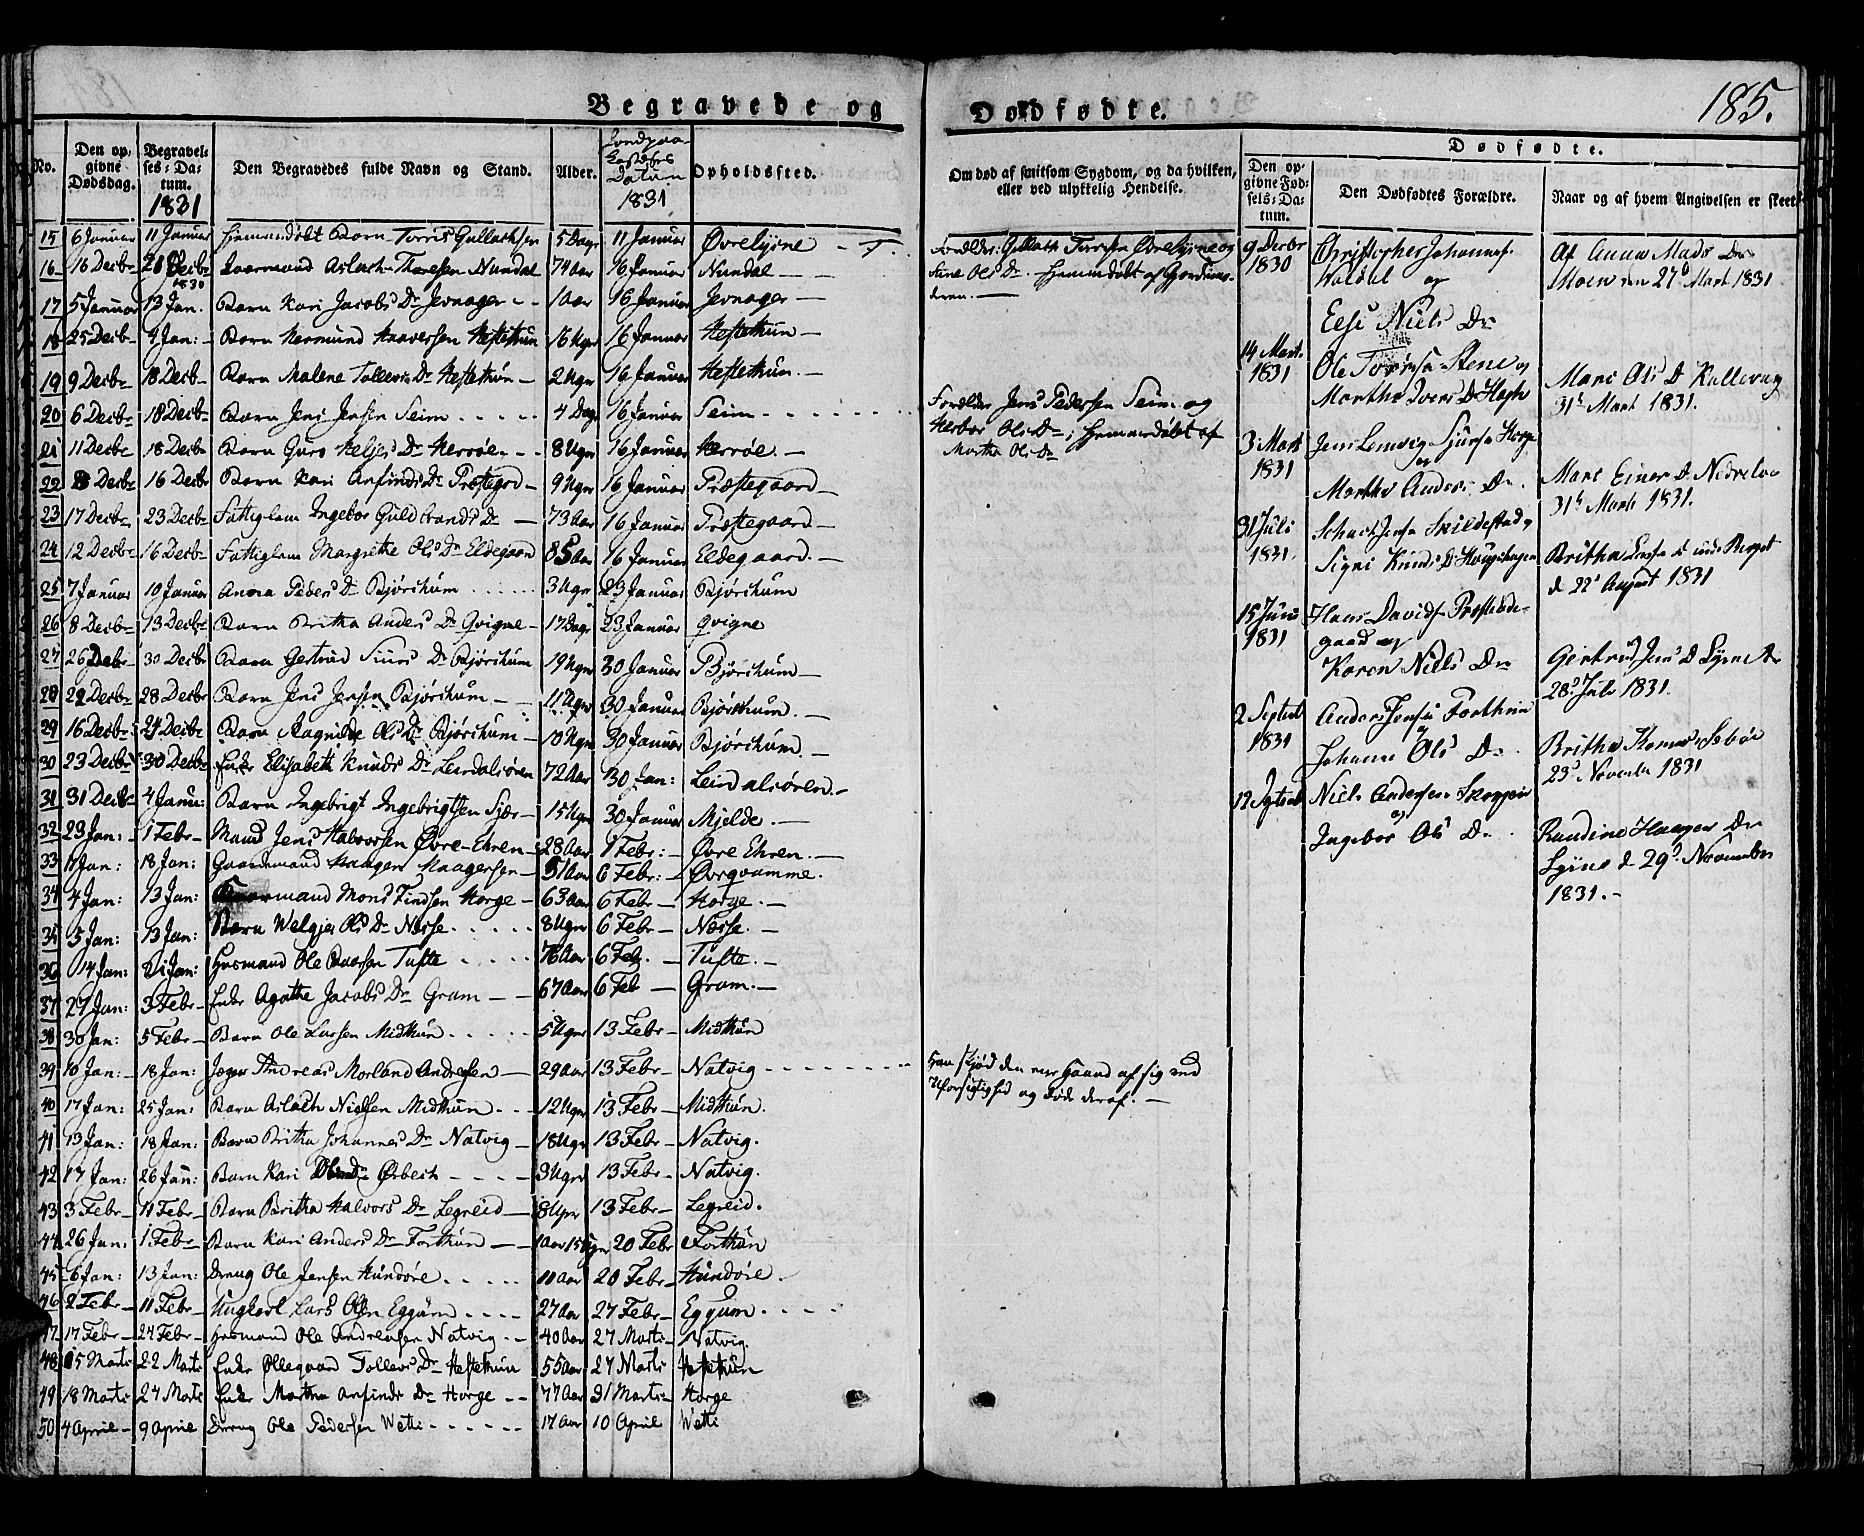 Begravede og Dødfødte.
185.
No.
Den opgivne Dødsdag.
Begravelses-Datum. 1831
Den Begravedes fulde Navn og Stand.
Alder.
Jordpaa-Kastelses Datum 1831
Opholdssted.
15 6 Januar 11 Januar Hjemmedøbt Barn Torris Gullachsen 5 Dage 11 Januar Øvrelysne
16 16 Decbr 21 Decbr 1830 Aslach Nundal 74 Aar 16 Januar Nundal
17 5 Januar 13 Jan. Barn Kari Jacobs Dr Jevnager 1 Aar 16 Januar Jevnager
18 25 Decbr 4 Jan: Barn Hermund Haaversen Hestethun 16 Uger 16 Januar Hestethun
19 9 Decbr 18 Decbr Barn Malene Tollevs Dr Hestethun 2 Uger 16 Januar Hestethun.
20 6 Decbr 18 Decbr Barn Jens Jensen Seim 4 Dage 16 Januar Seim
21 11 Decbr 18 Decbr Barn Guro Heljes Dr Herrøe 8 Uger 16 Januar Herrøe.
22 8 Decbr 16 Decbr Barn Kari Anfinds Dr Prestegrd 9 Uger 16 Januar Præstegaard
23 17 Decbr 23 Decbr Fattiglem Ingebor Guldbrands Dr 73 Aar 16 Januar Præstegaard
24 12 Decbr 16 Decbr Fattiglem Margrethe Ols Dr Eldegaard 85 Aar 16 Januar Eldegaard.
25 7 Januar 10 Januar Anna Peders Dr Bjørchum 3 Uger 23 Januar Bjørchum
26 8 Decbr 13 Decbr Barn Britha Anders Dr Qvigne 17 Dage 23 Januar Qvigne
27 26 Decbr 30 Decbr Barn Gertrud Siurs Dr Bjørchum 19 Uger 30 Januar Bjørchum
28 22 Decbr 28 Decbr Barn Jens Jensen Bjørchum 11 Uger 30 Januar Bjørchum.
29 16 Decbr 24 Decbr Barn Ragnilde Ols Dr Bjørchum 10 Uger 30 Januar Bjørchum.
30 23 Decbr 30 Decbr Enke Elisabeth Knuds Dr Leirdalsøren 72 Aar 30 Jan: Leirdalsøren.
31 31 Decbr 4 Janu: Barn Ingebrigt Ingebrigtsen 15 Uger 30 Januar Mjelde.
32 23 Jan: 1 Febr Mand Jens Halvorsen Øvre-Ehren 28 Aar 1 Febr: Øvre Ehren.
33 11 Jan: 18 Jan: Gaardmand Haagen Haagensen 51 Aar 6 Febr: Øvrqvamme.
34 4 Jan: 13 Jan: Mons Findsen Horge 63 Aar 6 Febr Horge.
35 5 Jan: 13 Jan: Barn Welgje Ols Dr Nesse 8 Uger 6 Febr Nesse.
36 14 Jan: 21 Jan: Husmand Ole Tufte 76 Aar 6 Feb. Tufte.
37 27 Jan: 3 Febr Enke Agathe Jacobs Dr Gram 67 Aar 6 Feb Gram.
38 30 Jan: 5 Febr Barn Ole Larsen Midthun 5 Uger 13 Febr Midthun
39 10 Jan: 18 Jan: Jæger Andreas Morland Andersen 29 Aar 13 Febr Natvig
40 17 Jan: 25 Jan: Barn Aslach Nielsen Midthun 12 Uger 13 Febr Midthun.
41 13 Jan: 18 Jan: Barn Britha Johannes Dr Natvig 18 Uger 13 Febr Natvig.
42 17 Jan: 26 Jan: Barn Kari Ørbech 3 Uger 13 Febr Natvig.
43 3 Febr 11 Febr Barn Britha Halvors Dr Legreid 8 Uger 13 Febr Legreid.
44 26 Jan: 1 Febr Barn Kari Anders Dr Forthun 1 Aar 15 Uger 20 Febr Forthun
45 6 Jan: 13 Jan: Dreng Ole Jensen Hundøre 11 Aar 20 Febr Hundøre
46 2 Febr 11 Febr Ungkarl Lars Olsen Eggum 27 Aar 27 Febr Eggum
47 17 Febr 24 Febr Husmand Ole Andreasen Natvig 40 Aar 27 Marts Natvig
48 15 Marts 22 Marts Enke Ollegaard Tollevs Dr Hestethun 55 Aar 27 Marts Hestethun
49 18 Marts 24 Marts Enke Martha Anfinds Dr Horge 77 Aar 31 Marts Horge
50 4 April 9 April Dreng Ole Pedersen Wetti 17 Aar 10 April Wetti
Om død af smitsom Sygdom, og da hvilken, eller ved ulykkelig Hendelse.
Forældre: Gullach Torrisen Øvrelysne og
Ols Dr Hjemmedøbt af Gjordmo-
deren.
Forældre Jens Pedersen Seim og
Herbor Ols Dr, Hjemmedøbt af
Martha Ols Dr
Han skjød den ene Haand af sig ved
Uforsigtighed og døde deraf.
Dødfødte.
Den opgivne Fødsels-Datum.
Den Dødfødtes Forældre.
Naar og af hvem Angivelsen er skeet
9 Decbr 1830
Christopher Johannes.
og
Eli Niels Dr
Af Anna Mads Dr
Moen den 27d Mart 1831
14 Mart. 1831
Ole Stene og
Martha Ivers Dr Hegh
Mari Ols D Kallevag
31t Mart 1831.
3 Mart 1831
Jens Lemvig Sjurs Horge
Martha Anders Dr.
Mari Einer D Nedreloe
31t Mart 1831.
31 Juli 1831.
Schach Jensen Skildestad og
Signi Knuds D Haugshagen
Britha
d 22d August 1831
15 Juni 1831
Hans Davids Præstede-
gaard og
Karen Niels Dr
Giertrud Jens D Lysne
28d Juli 1831.
2 Septbr 1831
Anders Jensen Forthun
og
Johanne Ols Dr.
Britha
23d November 1831
12 Septbr
Niels Andersen
og
Ingebor Ols Dr.
Randine Haagen Dr
Lysne d 29d November
1831.